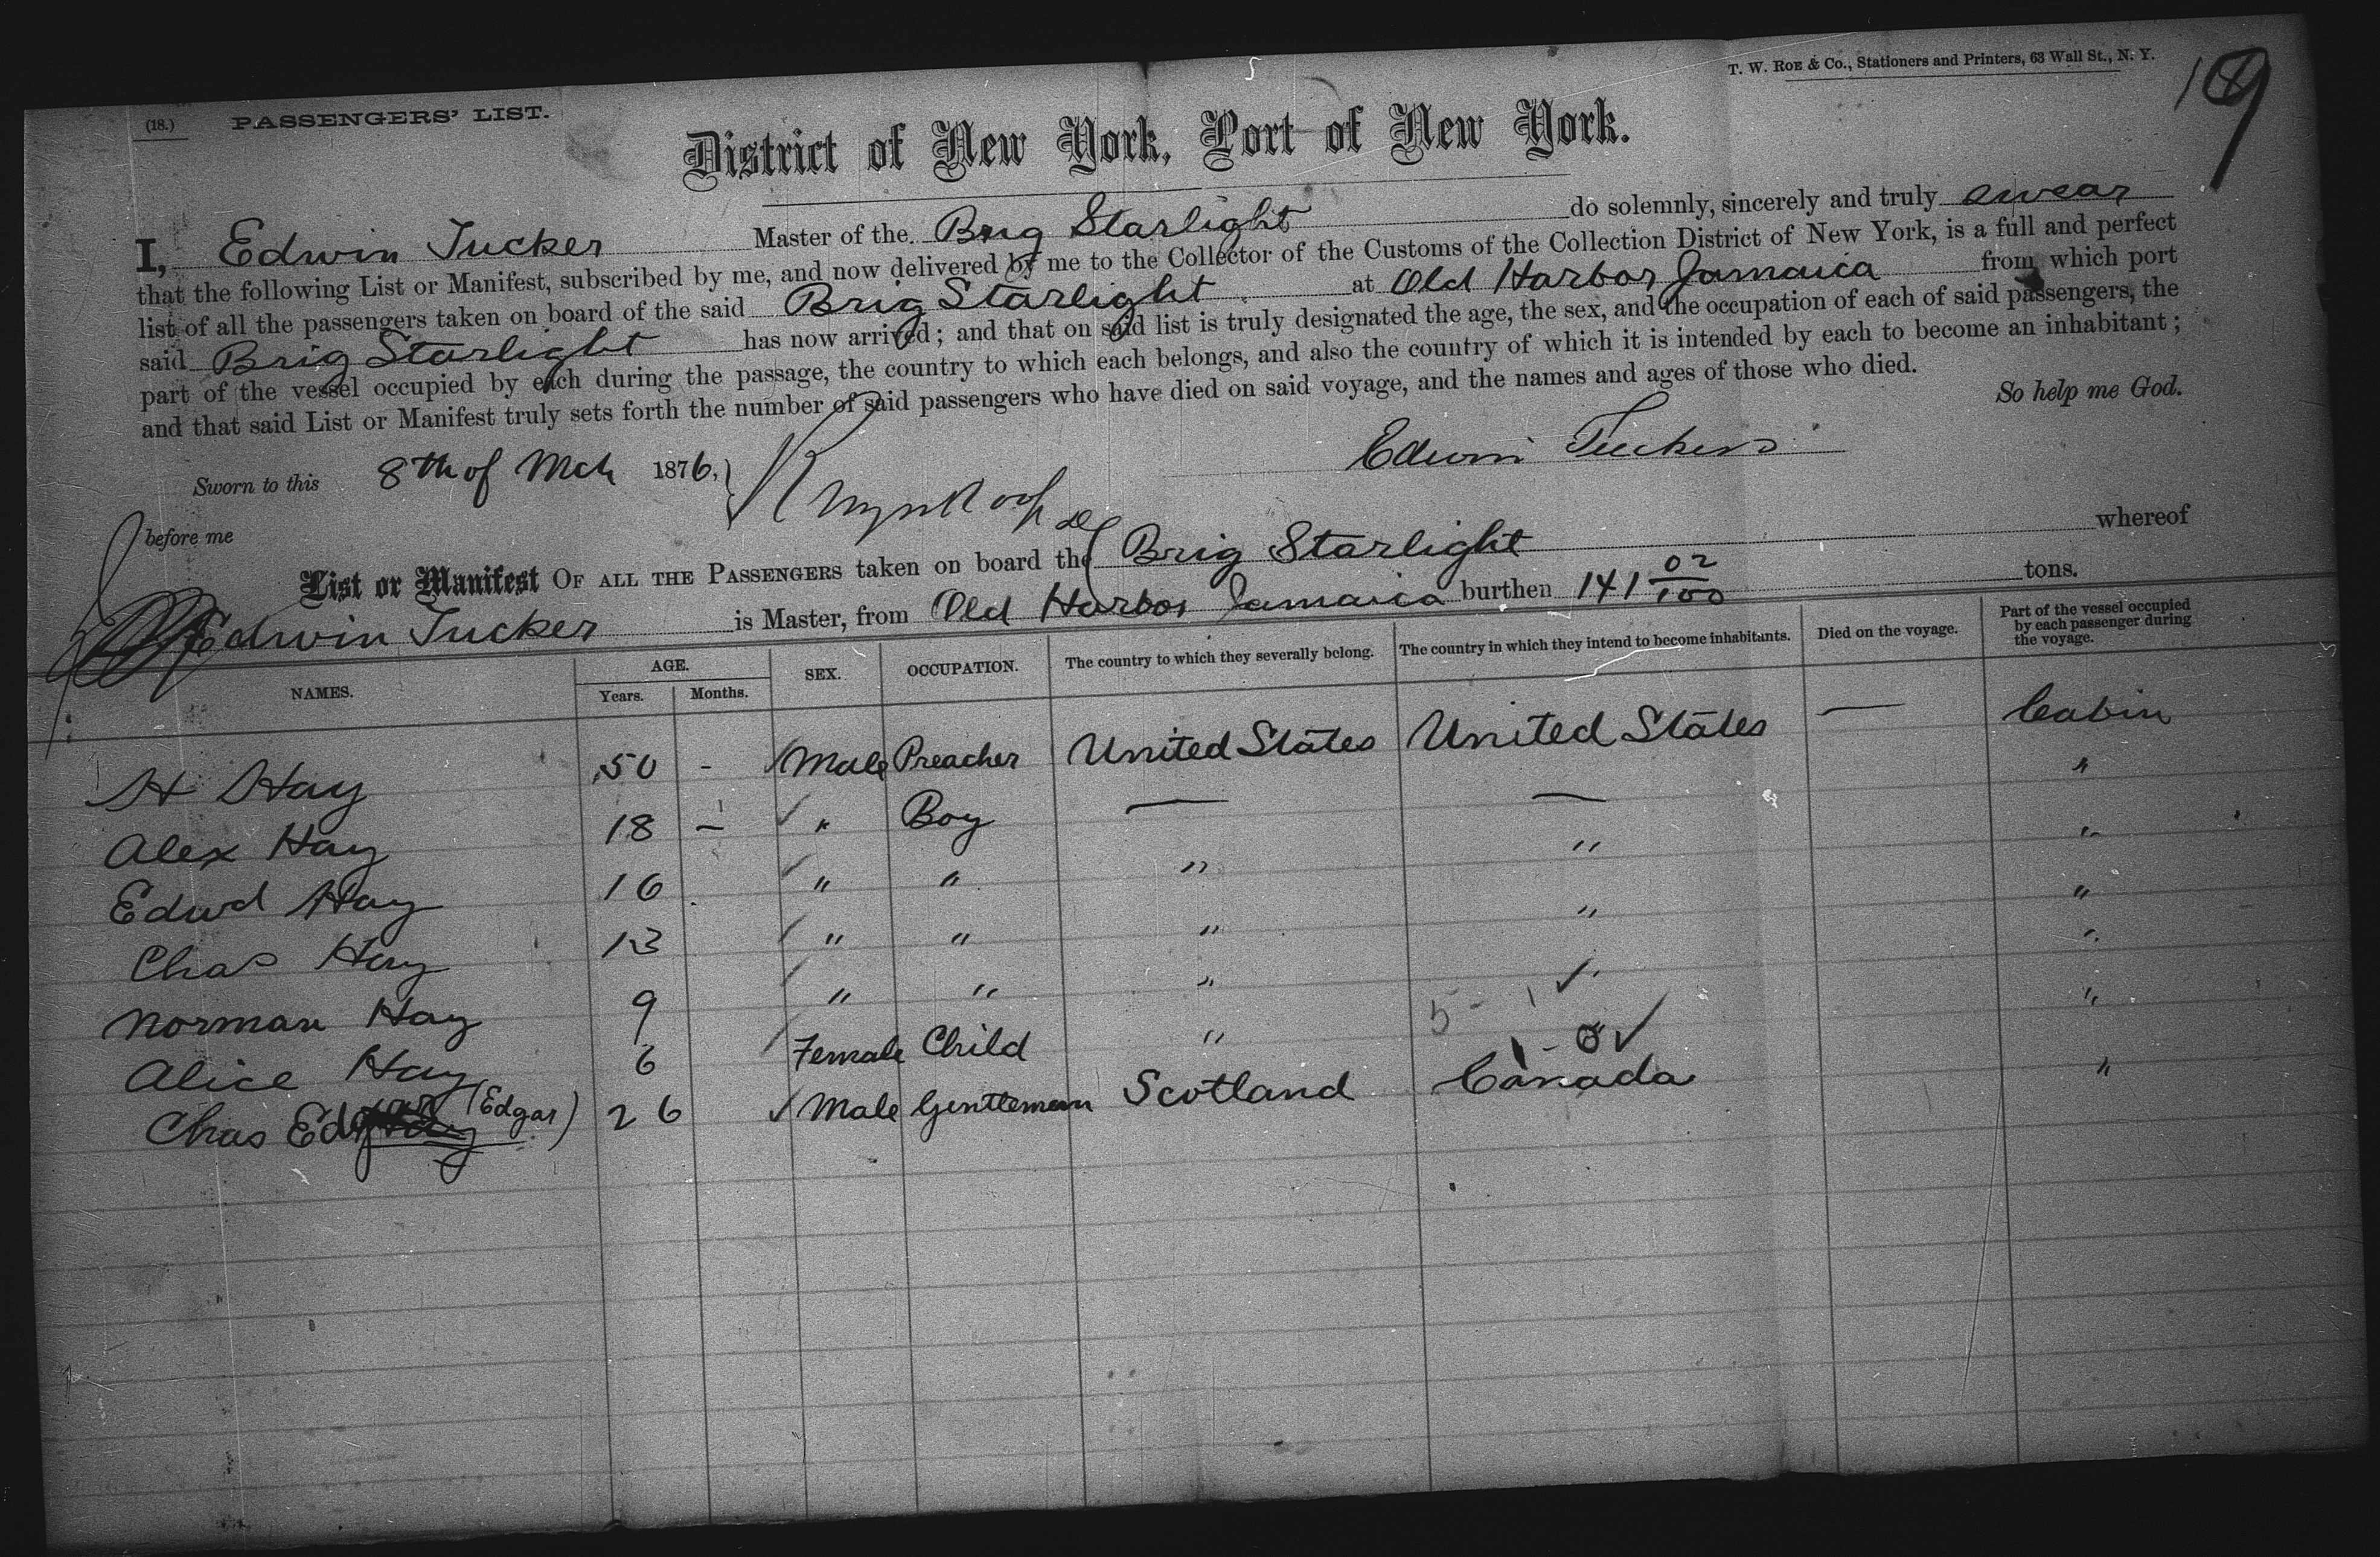 T. W. ROE & Co., Stationers and Printers, 63 Wall St., N. Y.
(18.) PASSENGERS' LIST.
District of New York, Port of New York.
I, Edwin Tucker Master of the Brig Starlight do solemnly, sincerely and truly swear
that the following List or Manifest, subscribed by me, and now delivered by me to the Collector of the Customs of the Collection District of New York, is a full and perfect
list of all the passengers taken on board of the said Brig Starlight at Old Harbor Jamaica from which port
said Brig Starlight has now arrived; and that on said list is truly designated the age, the sex, and the occupation of each of said passengers, the
part of the vessel occupied by each during the passage, the country to which each belongs, and also the country of which it is intended by each to become an inhabitant;
and that said List or Manifest truly sets forth the number of said passengers who have died on said voyage, and the names and ages of those who died.
So help me God.
Sworn to this 8th of Mch 1876,
Edwin Tucker
before me
List or Manifest OF ALL THE PASSENGERS taken on board the Brig Starlight whereof
Edwin Tucker is Master, from Old Harbor Jamaica burthen 141 02/100 tons.
NAMES. AGE. Years. Months. SEX. OCCUPATION. The country to which they severally belong. The country in which they intend to become inhabitants. Died on the voyage. Part of the vessel occupied by each passenger during the voyage.
H Hay 50 - Male Preacher United States United States — Cabin
Alex Hay 18 — " Boy — — "
Edwd Hay 16 " " " " "
Chas Hay 13 " " " " "
Norman Hay 9 " " " "
Alice Hay 6 Female Child " "
Chas Edgar (Edgar) 26 Male Gentleman Scotland Canada "